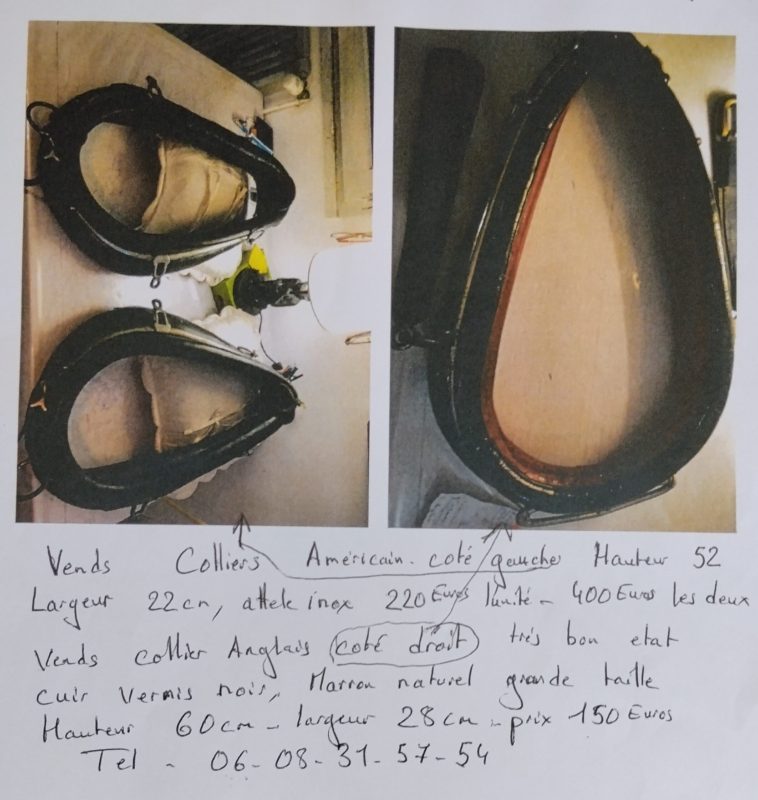 Vends Colliers Américain. coté gauche Hauteur 52
Largeur 22 cm, attele inox 220 Euros l'unité - 400 Euros les deux
Vends collier Anglais coté droit très bon etat
cuir vernis noir, Marron naturel grande taille
Hauteur 60 cm - largeur 28 cm - prix 150 Euros
Tel - 06-08-31-57-54